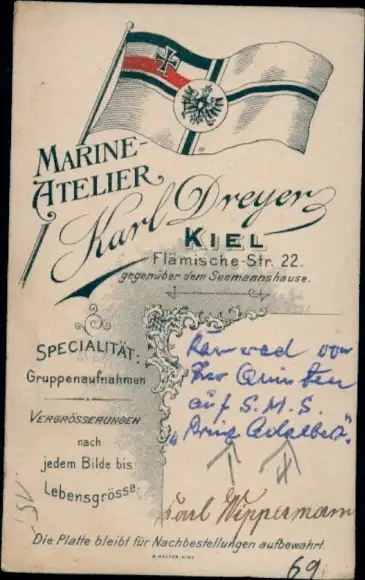 MARINE-
ATELIER
Karl Dreyer
KIEL
Flämische-Str. 22.
gegenüber dem Seemannshause.
SPECIALITÄT:
Gruppenaufnahmen
VERGRÖSSERUNGEN
nach
jedem Bilde bis
Lebensgrösse.
Kamerad von
Quinten
auf S.M.S.
"Prinz Adalbert"
Karl Wippermann
Die Platte bleibt für Nachbestellungen aufbewahrt.
69